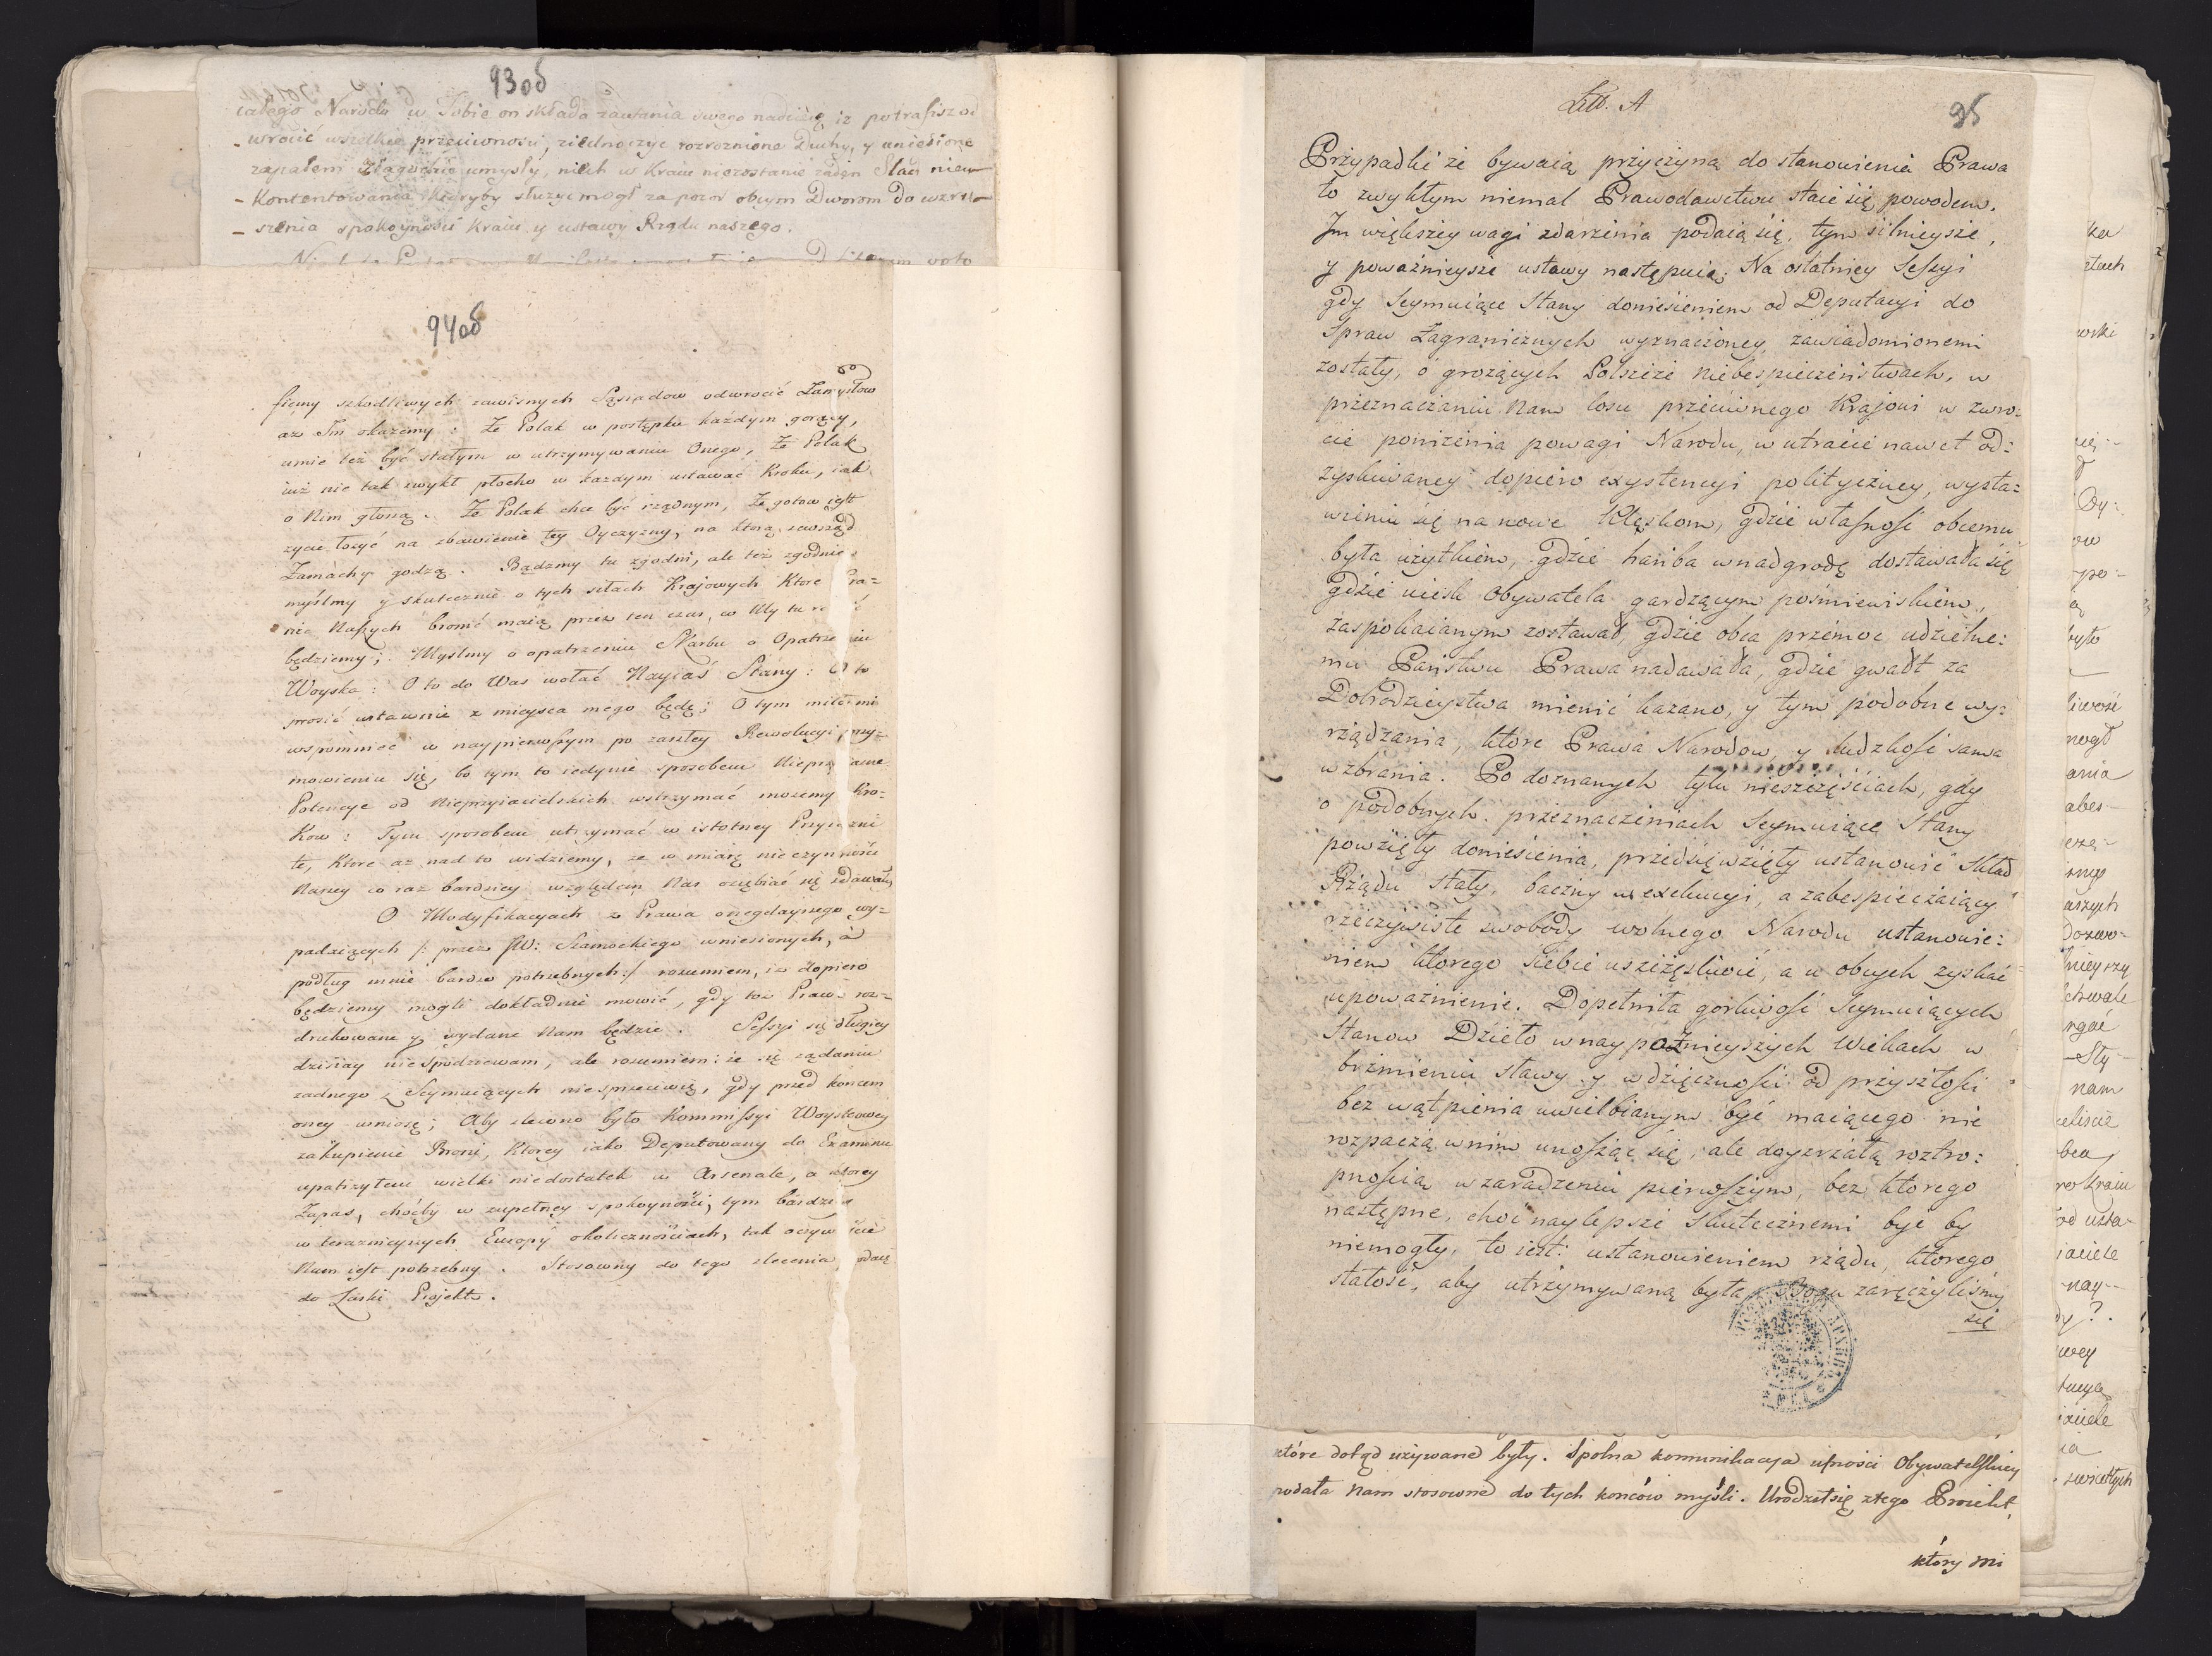 93об
całego Narodu w Tobie on składa zaufania swego nadzieię iż potrafisz od
-wrocić wszelkie przeciwności, ziednoczyć rozroznione Duchy, y uniesione
zapałem złagodzić umysły, niech w Kraiu niezostanie żaden Ślad nieu-
-kontentowania któryby służyć mogł za pozor obcym Dworom do wzru-
-szenia spokoyności Kraiu y ustawy Rządu naszego.
94об
fiemy szkodliwych zawisnych Sąsiadow odwrocić Zamysłow
aż Im okażemy: Że Polak w postępku każdym gorący,
umie też być stałym w utrzymywaniu Onego, Że Polak
iuż nie tak zwykł płocho w każdym ustawać Kroku, iak
o Nim głoszą. Że Polak chce być rządnym, Że gotow iest
życie łożyć na zbawienie tey Oyczyzny, na ktorą zewsząd
Zamachy godzą. Bądzmy tu zgodni, ale też zgodnie
myślmy y skutecznie o tych siłach Krajowych Ktore Gra=
nic Naszych bronić maią przez ten czas, w ktory tu
będziemy; Myślmy o opatrzeniu Skarbu o Opatrzeniu
Woyska: O to do Was wołać Nayiaś Stany: O to
prosić ustawnie z mieysca mego będę; O tym miło mi
wspomnieć w naypierwszym po zaszłey Rewolucyi przy=
mowieniu się, bo tym to iedynie sposobem Nieprzyiazne
Potencye od Nieprzyiacielskich wstrzymać możemy Kro=
kow: Tym sposobem utrzymać w istotney Przyiazni
te, Ktore aż nad to widziemy, że w miarę nieczynności
Naszey co raz bardziey względem Nas oziębiać się zdawały
O Modyfikacyach z Prawa onegdayszego wy=
padaiących /: przez JW: Szamockiego wniesionych, a
podług mnie bardzo potrzebnych:/ rozumiem, iż dopiero
będziemy mogli dokładnie mowić, gdy toż Prawo roz=
drukowane y wydane Nam będzie. Sessyi się długiey
dzisiay niespodziewam, ale rozumiem: że się żądaniu
żadnego z Seymuiących niesprzeciwię, gdy przed końcem
oney wniosę; Aby zlecono było Kommissyi Woyskowey
zakupienie Broni, Ktorey iako Deputowany do Examinu
upatrzyłem wielki niedostatek w Arsenale, a ktorey
Zapas, choćby w zupełney spokoyności, tym bardziey
w teraznieyszych Europy okolicznościach, tak oczywiście
Nam iest potrzebny. Stosowny do tego zlecenia podaię
do Laski Projekt.
Litt. A
95
Przypadki że bywaią przyczyną do stanowienia Prawa
to zwykłym niemal Prawodawctwu staie się powodem.
Im większey wagi zdarzenia podaią się, tym silnieysze,
y poważnieysze ustawy następuią; Na ostatniey Sessyi
gdy Seymuiące Stany doniesieniem od Deputacyi do
Spraw Zagranicznych wyznaczoney, zawiadomionemi
zostały, o grożących Polszcze niebespieczeństwach, w
przeznaczaniu Nam losu przeciwnego Krajowi w zwro=
cie poniżenia powagi Narodu, w utracie nawet od=
zyskiwaney dopiero exystencyi polityczney, wysta=
wieniu się na nowe Klęskom, gdzie własność obcemu
była użytkiem, gdzie hańba w nadgrodę dostawała się
gdzie ucisk Obywatela gardzącym pośmiewiskiem,
zaspokaianym zostawał, gdzie obca przemoc udzielne=
mu Państwu Prawa nadawała, gdzie gwałt za
Dobrodzieystwa mienić kazano, y tym podobne wy=
rządzania, które Prawa Narodow, y ludzkość sama
wzbrania. Po doznanych tylu nieszczęściach, gdy
o podobnych przeznaczeniach Seymuiące Stany
powzięły doniesienia, przedsięwzięły ustanowić Skład
Rządu stały, baczny w exekucyi, a zabespieczaiący
rzeczywiste swobody wolnego Narodu ustanowie=
niem którego siebie uszczęśliwić, a u obcych zyskać
upoważnienie. Dopełniła gorliwość Seymuiących
Stanow Dzieło w naypoźnieyszych Wiekach w
brzmieniu sławy y wdzięczności od przyszłości
bez wątpienia uwielbianym być maiącego nie
rozpaczą w nim unosząc się, ale doyzrzałą roztro=
pnością w zaradzeniu pierwszym, bez którego
następne, choć naylepsze skutecznemi być by
niemogły, to iest: ustanowieniem rządu, którego
stałość, aby utrzymywaną była, Bogu zaręczyliśmy
się
które dotąd używane były. Spolna kommunikacya ufności Obywatelskiey
podała Nam stosowne do tych końców myśli. Urodził się z tego Proiekt,
który mi